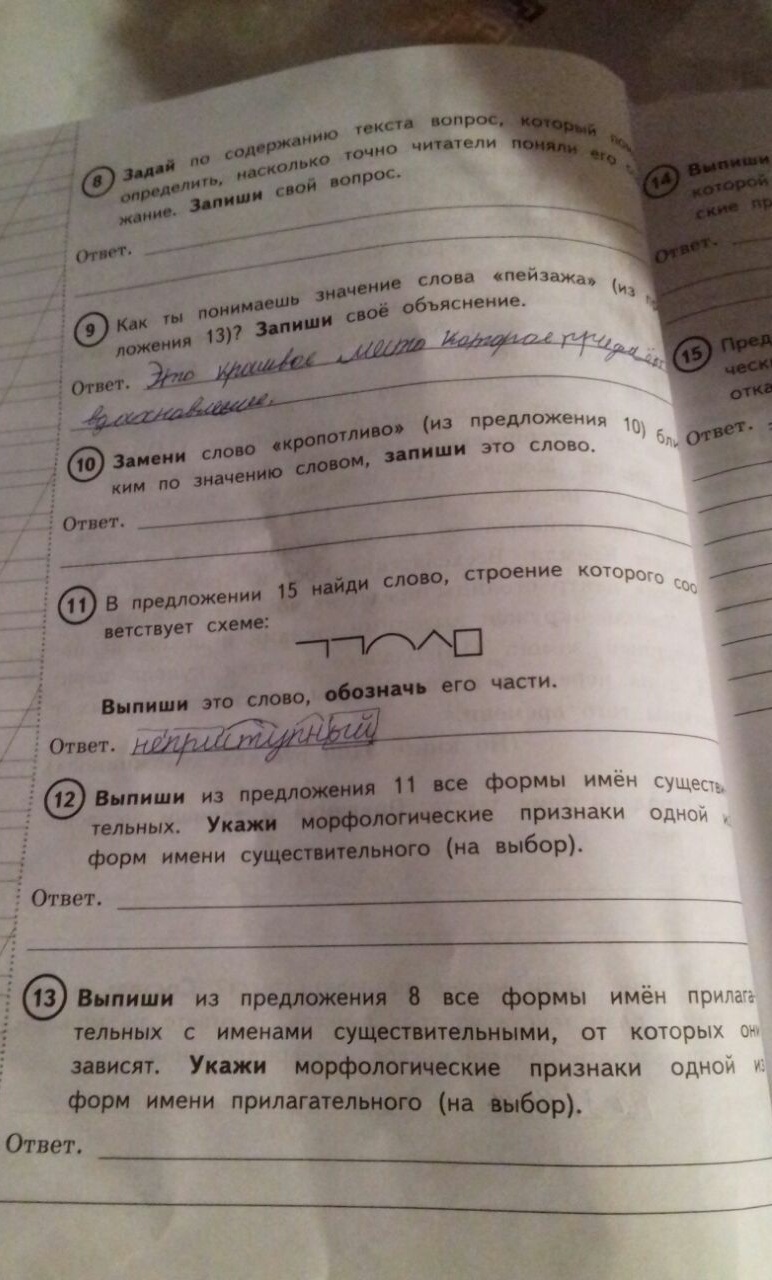 8 Задай по содержанию текста вопрос, который
определить, насколько точно читатели поняли его
жание. Запиши свой вопрос.
Ответ.
9 Как ты понимаешь значение слова «пейзажа» (из
ложения 13)? Запиши своё объяснение.
Ответ. Это красивое место которое придаёт
вдохновление.
10 Замени слово «кропотливо» (из предложения 10) бли
ким по значению словом, запиши это слово.
Ответ.
11 В предложении 15 найди слово, строение которого соо
ветствует схеме:
Выпиши это слово, обозначь его части.
Ответ. неприступный
12 Выпиши из предложения 11 все формы имён существи
тельных. Укажи морфологические признаки одной и
форм имени существительного (на выбор).
Ответ.
13 Выпиши из предложения 8 все формы имён прилага-
тельных с именами существительными, от которых они
зависят. Укажи морфологические признаки одной из
форм имени прилагательного (на выбор).
Ответ.
14 Выпиши
которой
ские пр
Ответ.
15 Пред
ческ
отка
Ответ.